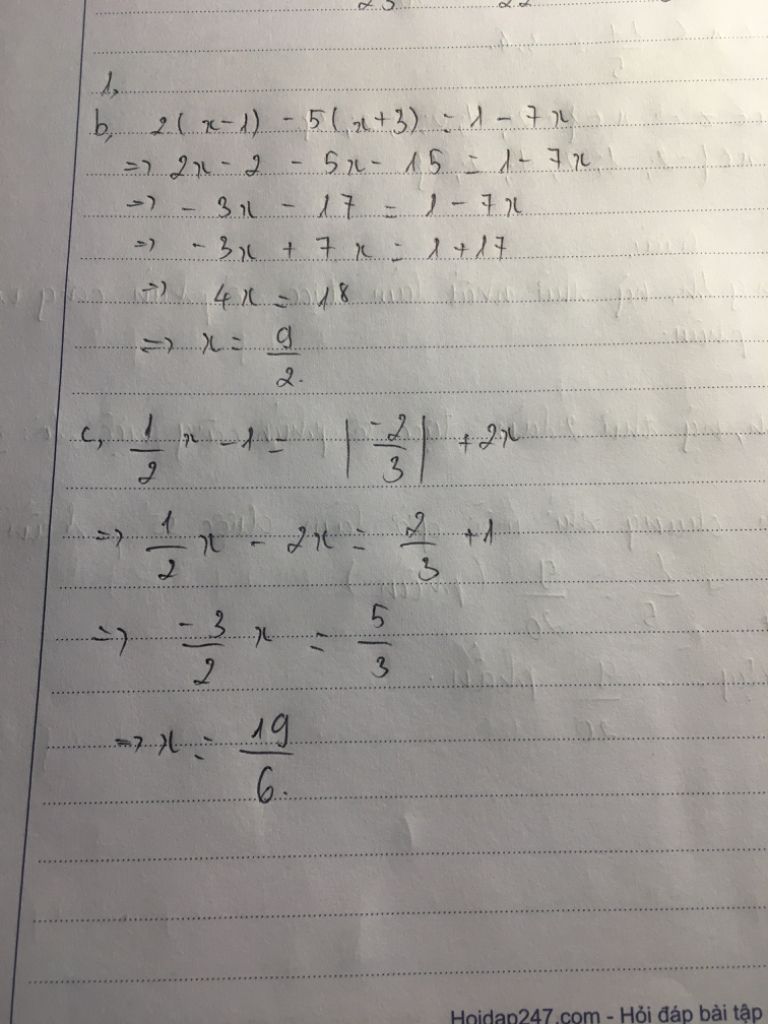 1,
b, 2(x-1) - 5(x+3) = 1 - 7x
=> 2x - 2 - 5x - 15 = 1 - 7x
=> - 3x - 17 = 1 - 7x
=> - 3x + 7x = 1 + 17
=> 4x = 18
=> x = 9/2.
c, 1/2 x - 1 = |-2/3| + 2x
=> 1/2 x - 2x = 2/3 + 1
=> -3/2 x = 5/3
=> x = 19/6.
Hoidap247.com - Hỏi đáp bài tập